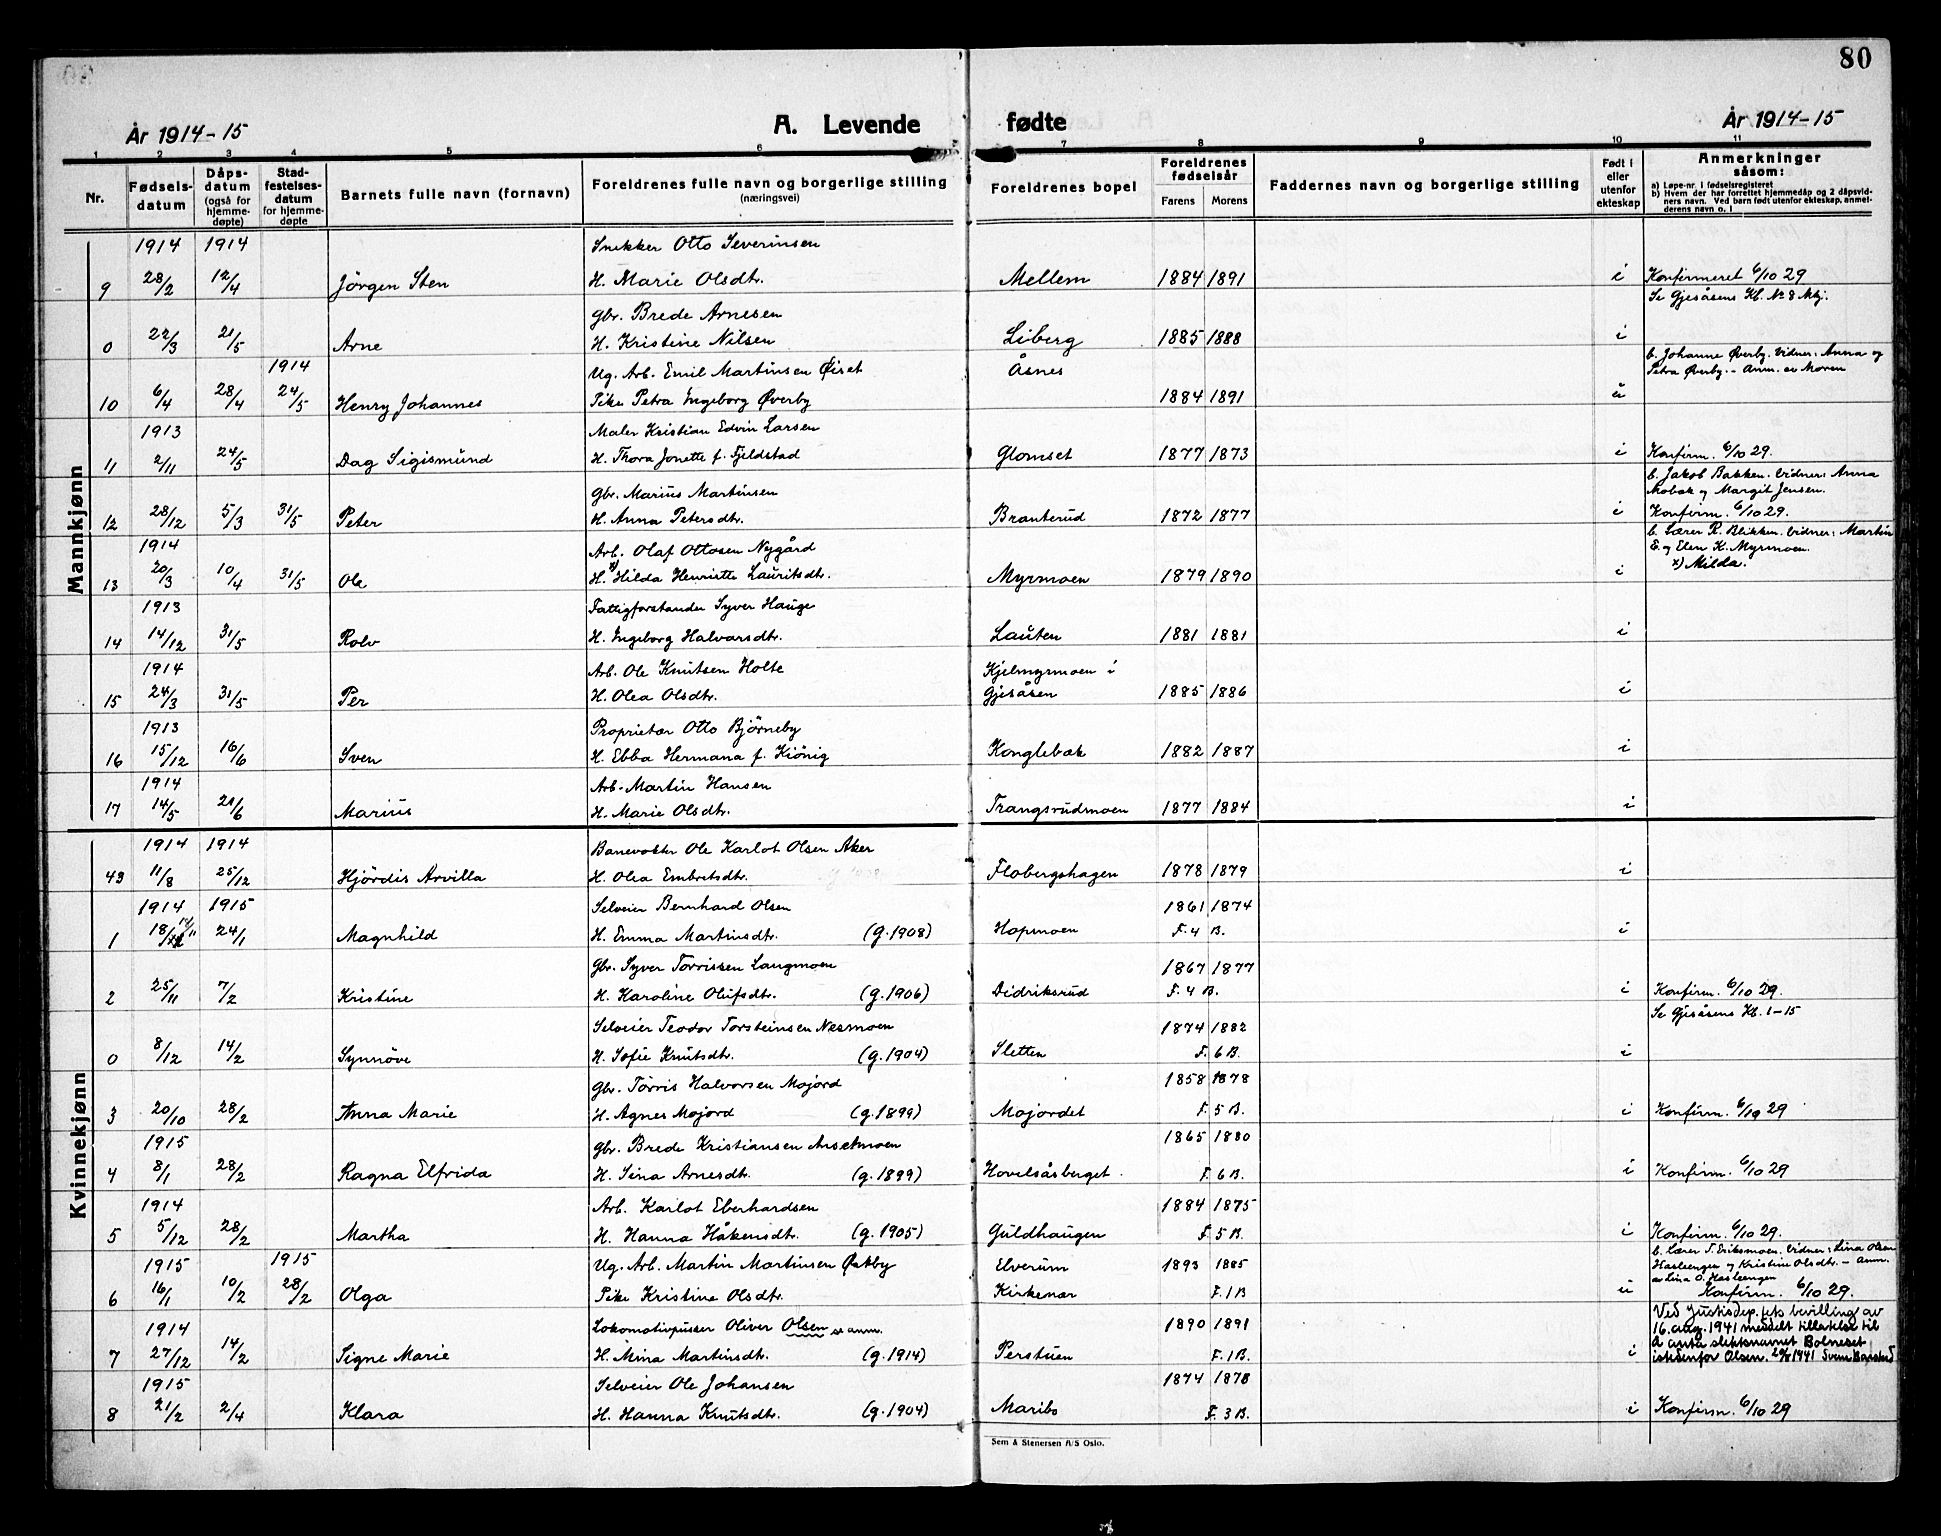 80
År 1914-15 A. Levende fødte År 1914-15
1 2 3 4 5 6 7 8 9 10 11
Nr. Fødsels-datum Dåps-datum (også for hjemme-døpte) Stad-festelses-datum for hjemme-døpte Barnets fulle navn (fornavn) Foreldrenes fulle navn og borgerlige stilling (næringsvei) Foreldrenes bopel Foreldrenes fødselsår Farens Morens Faddernes navn og borgerlige stilling Født i eller utenfor ekteskap Anmerkninger såsom: a) Løpe-nr. i fødselsregisteret b) Hvem der har forrettet hjemmedåp og 2 dåpsvidners navn. Ved barn født utenfor ekteskap, anmelderens navn o. l
Mannkjønn
1914 1914 Snekker Otto Severinsen
9 28/2 12/4 Jörgen Sten H. Marie Olsdtr. Mellem 1884 1891 i Konfirmeret 6/10 29
Gbr. Brede Arnesen Se Gjesåsens Kb. No 8 Mkj.
0 22/3 21/5 Arne H. Kristine Nilsen Liberg 1885 1888 i
1914 Ug. Arb. Emil Martinsen Øiset Åsnes b. Johanne Øverby. Vidner: Anna og
Petra Øverby. - Anm. av Moren
10 6/4 28/4 24/5 Henry Johannes Pike Petra Ingeborg Øverby 1884 1891 u
1913 Maler Kristian Edvin Larsen
11 2/11 24/5 Dag Sigismund H. Thora Jonette f. Fjeldstad Glomset 1877 1873 i Konfirm. 6/10 29.
Gbr. Marius Martinsen b. Jakob Bakken. Vidner: Anna
og Margit Jensen.
12 28/12 5/3 31/5 Peter H. Anna Petersdtr. Branterud 1872 1877 i Konfirm. 6/10 29.
1914 Arb. Olaf Ottosen Nygård b. Lærer R. Blikken. Vidner: Martin
E. og Elen K. Myrmoen.
13 20/3 10/4 31/5 Ole H. x) Hilda Henriette Lauritsdtr. Myrmoen 1879 1890 i x) Milda.
1913 Fattigforstander Syver Hauge
14 14/12 31/5 Rolv H. Ingeborg Halvorsdtr. Lauten 1881 1881 i
1914 Arb. Ole Knutsen Holte Kjelmyrmoen i
15 24/3 31/5 Per H. Olea Olsdtr. Gjesåsen 1885 1886 i
1913 Proprietær Otto Bjørneby
16 15/12 16/6 Sven H. Ebba Hermana f. Kiönig Konglebæk 1882 1887 i
1914 Arb. Martin Hansen
17 14/5 21/6 Marius H. Marie Olsdtr. Trangsrudmoen 1877 1884 i
Kvinnekjønn
1914 1914 Banevokter Ole Karlot Olsen Aker
43 11/8 25/12 Hjördis Arvilla H. Olea Embretsdtr. Flobergshagen 1878 1879 i
1914 1915 Selveier Bernhard Olsen 1861 1874
1 18/12 24/1 Magnhild H. Emma Martinsdtr. (g. 1908) Hopmoen F. 4 B. i
Gbr. Syver Torrissen Langmoen 1867 1877
2 25/11 7/2 Kristine H. Karoline Olufsdtr. (g. 1906) Didriksrud F. 4 B. i Konfirm. 6/10 29.
Selveier Teodor Torsteinsen Nesmoen 1874 1882 Se Gjesåsens Kb. 1-15
0 8/12 14/2 Synnöve H. Sofie Knutsdtr. (g. 1904) Sletten F. 6 B. i
Gbr. Torris Halvorsen Mojord 1858 1878
3 20/10 28/2 Anna Marie H. Agnes Mojord (g. 1899) Mojordet F. 5 B. i Konfirm. 6/10 29
1915 Gbr. Brede Kristiansen Ansetmoen 1865 1880
4 8/1 28/2 Ragna Elfrida H. Sina Arnesdtr. (g. 1899) Hovelsåsberget. F. 6 B. i Konfirm. 6/10 29
1914 Arb. Karlot Eberhardsen 1884 1875
5 5/12 28/2 Martha H. Hanna Håkensdtr. (g. 1905) Guldhaugen F. 5 B. i Konfirm. 6/10 29.
1915 1915 Ug. Arb. Martin Martinsen Østby Elverum 1893 1885 b. Lærer T. Eriksmoen. Vidner: Lina Olsen
Hasleengen og Kristine Olsdtr. - Anm.
av Lina O. Hasleengen
6 16/1 10/2 28/2 Olga Pike Kristine Olsdtr. Kirkenær F. 1 B u Konfirm. 6/10 29.
1914 Lokomotivpusser Oliver Olsen se anm. 1890 1891 Ved Justisdep.ts bevilling av
16. aug. 1941 meddelt tillatelse til
7 27/12 14/2 Signe Marie H. Mina Martinsdtr. (g. 1914) Perstuen F. 1 B. i å anta slektsnavnet Bolneset
istedenfor Olsen.
1915 Selveier Ole Johansen 1874 1878
8 21/2 2/4 Klara H. Hanna Knutsdtr. (g. 1904) Maribo F. 3 B. i Konfirm. 6/10 29
Sem & Stenersen A/S Oslo.